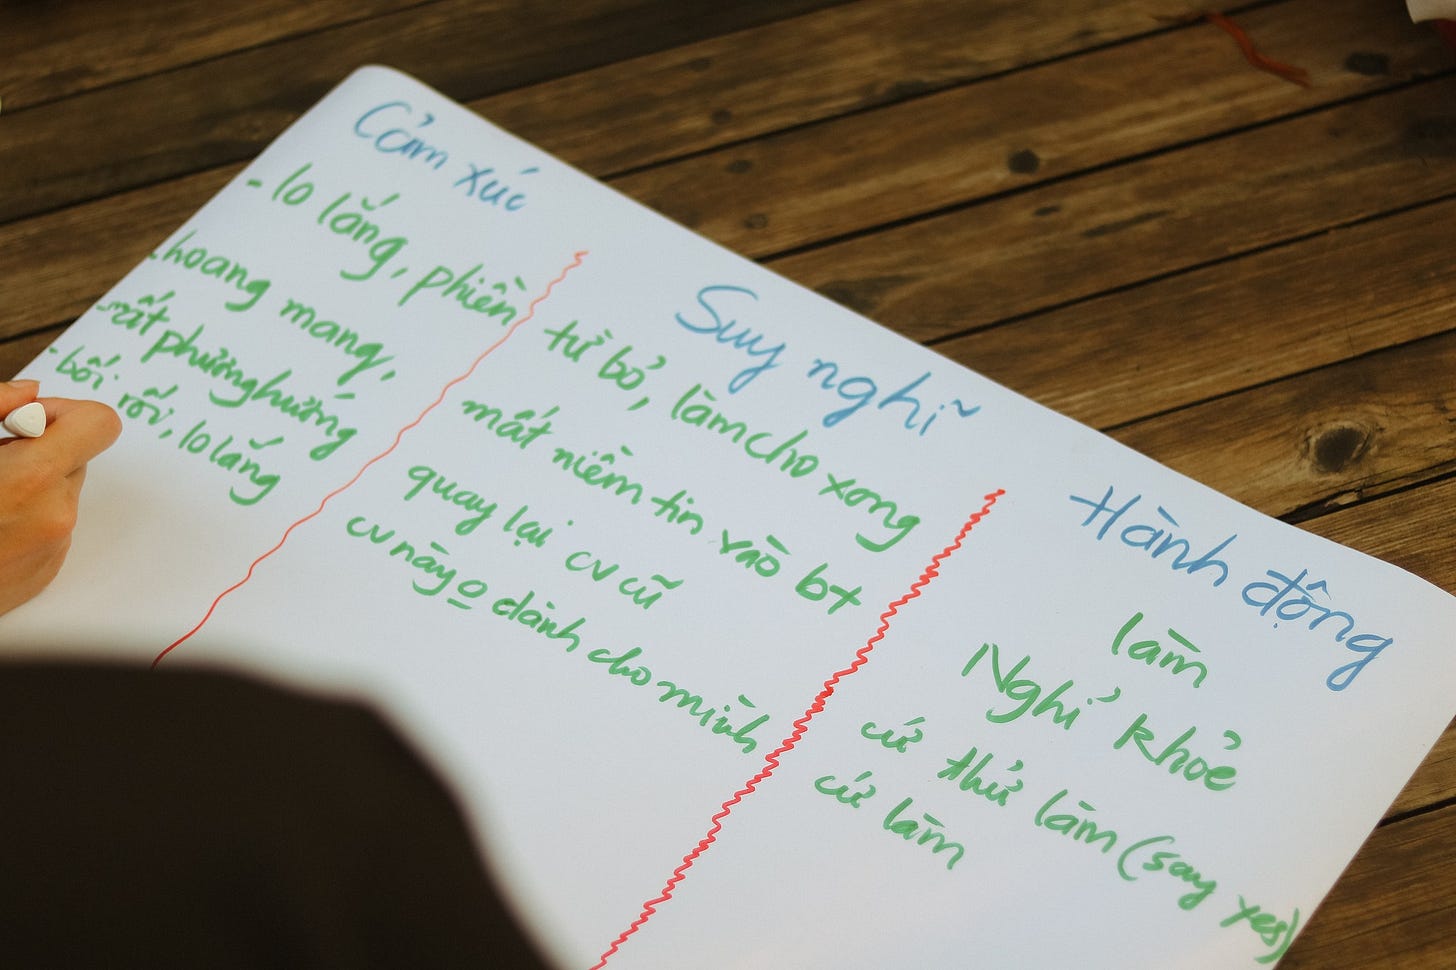 Cảm xúc
- lo lắng, phiền
hoang mang,
- mất phương hướng
- bối rối, lo lắng
Suy nghĩ
từ bỏ, làm cho xong
mất niềm tin vào bt
quay lại cv cũ
cv này o dành cho mình
Hành động
làm
Nghỉ khỏe
cứ thử làm (say yes)
cứ làm